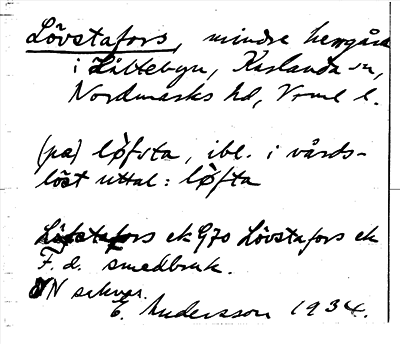 Lövstafors, mindre herrgård
i Lillebyn, Karlanda sn,
Nordmarks hd, Vrml l.
(på) löfsta, ibl. i vårds-
löst uttal: löfta
Löfstafors ek G70 Lövstafors ek
F. d. smedbruk.
ON saknar.
E. Andersson 1934.